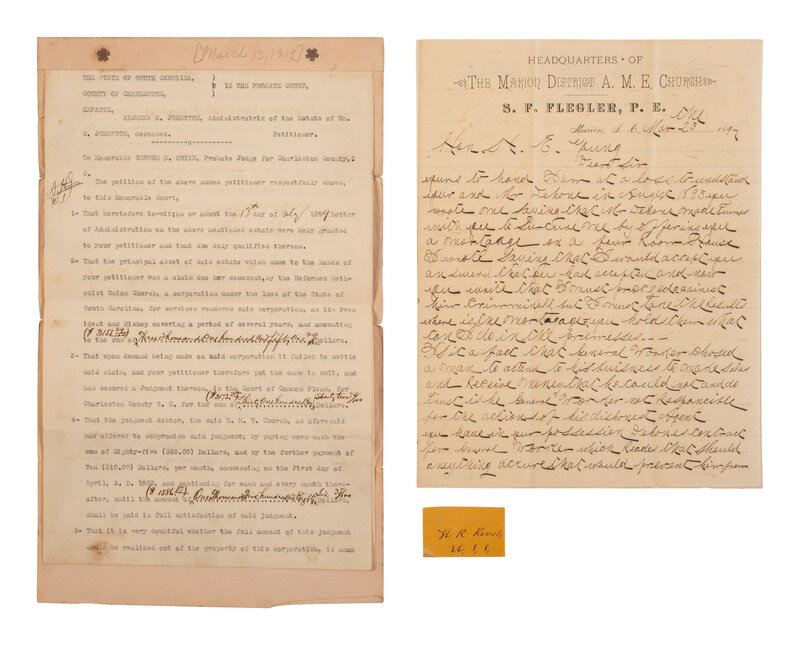 [March 13, 1903]
THE STATE OF SOUTH CAROLINA,
COUNTY OF CHARLESTON,
IN THE PROBATE COURT,
EXPARTE,
ALONZIA E. JOHNSTON, Administratrix of the Estate of Wm.
E. JOHNSTON, deceased. Petitioner.
To Honorable GEORGE D. BRYAN, Probate Judge for Charleston County, S
C.
The petition of the above named petitioner respectfully shows,
to this Honorable Court,
1- That heretofore to-wit; on or about the 13th day of July 1899 letter
of Administration on the above mentioned estate were duly granted
to your petitioner and that she duly qualified thereon.
2- That the principal asset of said estate which came to the hands of
your petitioner was a claim due her decedent, by the Reformed Meth-
odist Union Church, a corporation under the laws of the State of
South Carolina, for services rendered said corporation, as its Pres
ident and Bishop covering a period of several years, and amounting
to the sum of Three Thousand One hundred and fifty One Dollars.
3- That upon demand being made on said corporation it failed to settle
said claim, and your petitioner therefore put the same in suit, and
has secured a Judgment thereon, in the Court of Common Pleas, for
Charleston County S. C. for the sum of Dollars.
4- That the judgment debtor, the said R. M. U. Church, as aforesaid
has offered to compromise said judgment, by paying down cash the
sum of Eighty-five ($85.00) Dollars, and by the further payment of
Ten ($10.00) Dollars, per month, commencing on the First day of
April, A. D. 1903, and continuing for each and every month there-
after, until the amount of One Thousand Five hundred Eighty Six Dollars,
shall be paid in full satisfaction of said judgment.
5- That it is very doubtful whether the full amount of this judgment
could be realized out of the property of this corporation, if
HEADQUARTERS · OF
THE MARION DISTRICT A. M. E. CHURCH
S. F. FLEGLER, P. E.
Marion, S. C. Mar 23 189
Hon. H. E. Young
Dear Sir
yours to hand I am at a loss to undstand
your and Mr Dehone in August 1893 you
wrote one saying that Mr Dehone made
with you to me by offering you
a mortgage on a four Room House
I wrote Saying that I would accept you
answerd that you had accepted and now
you write that I must proceed against
him Criminall but I must take the Results
where is the mortgage you hold then what
can I do in the premesses--
Is it a fact that General Worker Chosed
a man to attend to his buisness to make Sales
and Receive moneys that he could not and do
trust is the General Worker not Responsible
for the actions of his dishonest Agent
you have in your possession Dehones contract
for General Worker which Reades that Should
anything accure that would prevent him from
H R Revels
U. S. S.